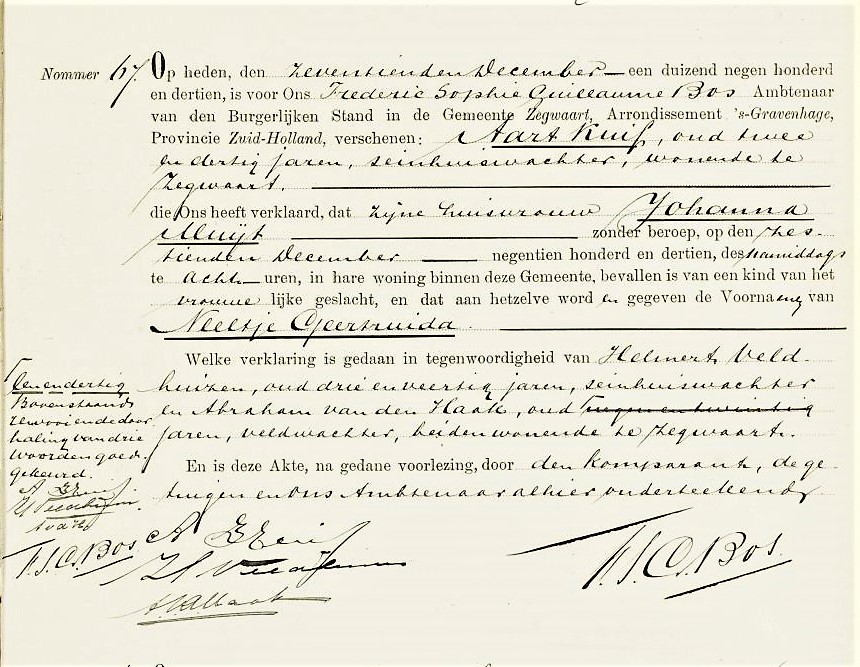 Nommer 67. Op heden, den zeventienden December een duizend negen honderd
en dertien, is voor Ons Frederic Sophie Guillaume Bos Ambtenaar
van den Burgerlijken Stand in de Gemeente Zegwaart, Arrondissement 's-Gravenhage,
Provincie Zuid-Holland, verschenen: Aart Kuif, oud twee
en dertig jaren, seinhuiswachter, wonende te
Zegwaart.
die Ons heeft verklaard, dat zijne huisvrouw Johanna
Muijt zonder beroep, op den zes-
tienden December negentien honderd en dertien, des namiddags
te acht uren, in hare woning binnen deze Gemeente, bevallen is van een kind van het
vrouwe lijke geslacht, en dat aan hetzelve word en gegeven de Voornamen van
Neeltje Geertruida.
Welke verklaring is gedaan in tegenwoordigheid van Helmert Veld-
huizen, oud drie en veertig jaren, seinhuiswachter
en Abraham van den Haak, oud negen en twintig
jaren, veldwachter, beiden wonende te Zegwaart.
En is deze Akte, na gedane voorlezing, door den komparant, de ge-
tuigen en ons Ambtenaar alhier onderteekend.
een en dertig
Bovenstaande
renvooi en de door
haling van drie
woorden goed-
gekeurd.
F.S.G. Bos
A Kuif
H Veldhuizen
A.v.d.Haak
F.S.G. Bos